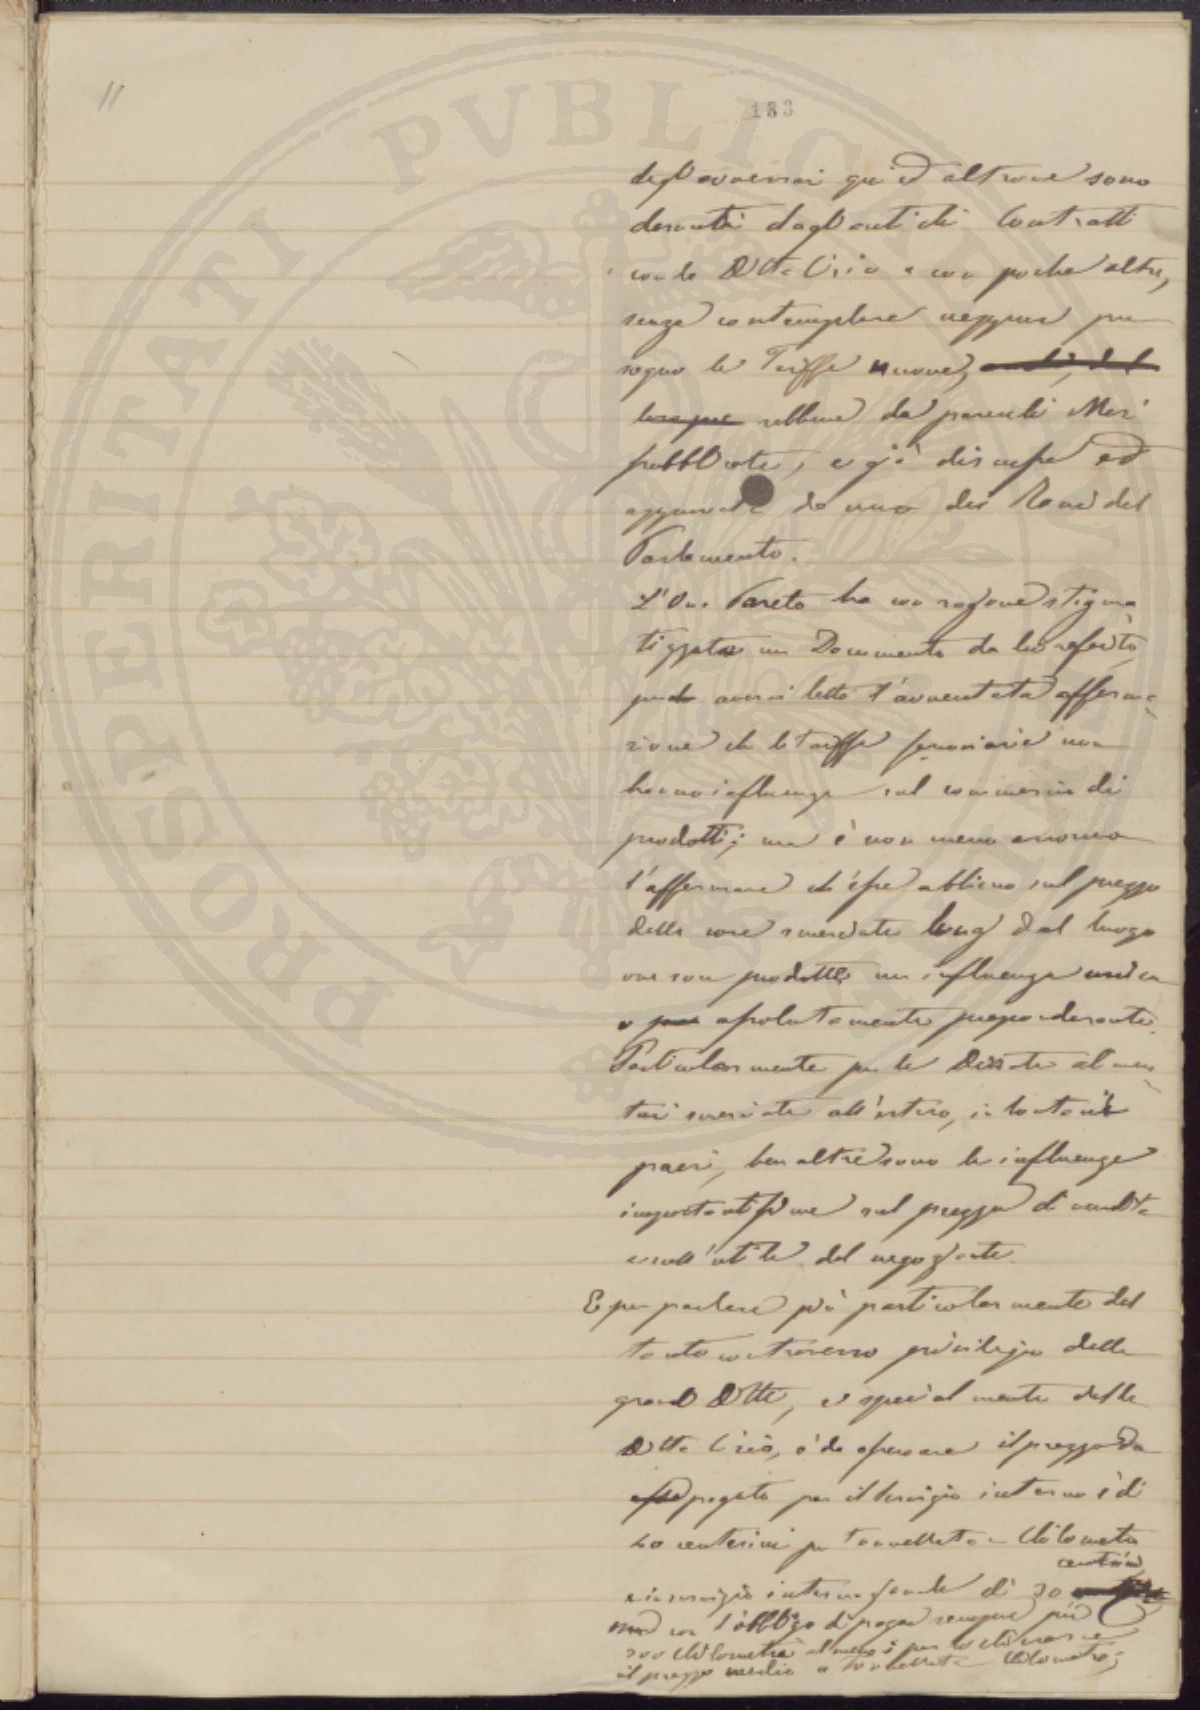 11
183
degl'avversari qui ed altrove sono
desunti dagl'antichi Contratti
con la Ditta Cirio e con poche altre,
senza contemplare neppure per
sogno le Tariffe nuove,
sebbene da parecchi Mesi
pubblicate, e già discusse ed
approvate da uno dei Rami del
Parlamento.
L'On. Pareto ha con ragione stigma
tizzato un Documento da lui riferito,
avervi letto l'avventata afferma
zione che le tariffe ferroviarie non
hanno influenza sul commercio dei
prodotti; ma è non meno erroneo
l'affermare ch'esse abbiano sul prezzo
delle cose smerciate lungi dal luogo
ove son prodotte un influenza unica
o assolutamente preponderante.
Particolarmente per le Derrate alimen
tari smerciate all'estero, in lontani
paesi, ben altre sono le influenze
importantissime sul prezzo di vendita
e sull'utile del negoziante.
E per parlare più particolarmente del
tanto controverso privilegio delle
grandi Ditte, e specialmente della
Ditta Cirio, è da osservare il prezzo da
essa pagato per il servizio interno è di
centesimi per tonnellata-Chilometro
centesimi
e in servizio internazionale di 30
con l'obbligo di pagar sempre più
Chilometri almeno;
il prezzo medio a tonnellata-Chilometro;